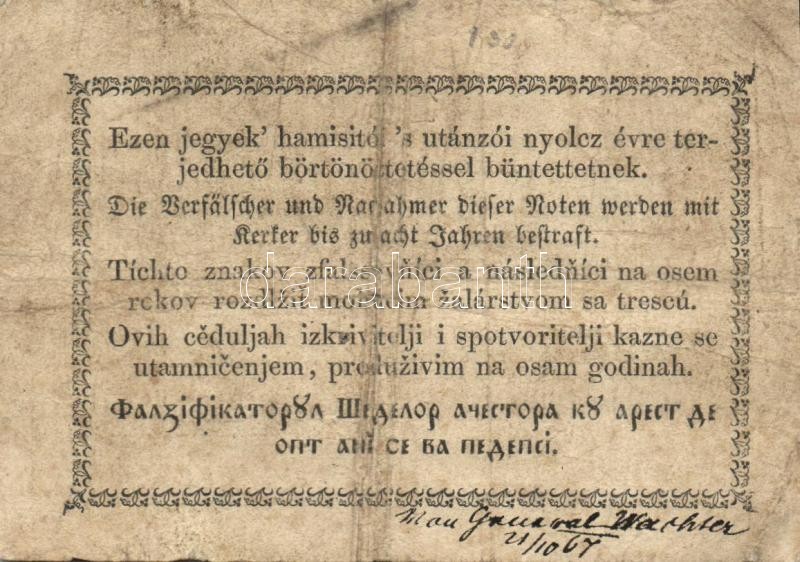 1.30
Ezen jegyek' hamisitói 's utánzói nyolcz évre ter-
jedhető börtönöztetéssel büntettetnek.
Die Verfälscher und Nachahmer dieser Noten werden mit
Kerker bis zu acht Jahren bestraft.
Tíchto znakov zfalšovňíci a následňíci na osem
rokov rozdlžit možním žalárstvom sa trescú.
darabanth
Ovih cěduljah izkrivitelji i spotvoritelji kazne se
utamničenjem, produživim na osam godinah.
Фалꙁіфікаторꙋл Шеделор ачестора кꙋ арест де
опт анї се ва педепсі.
General Wachter
21/10 67